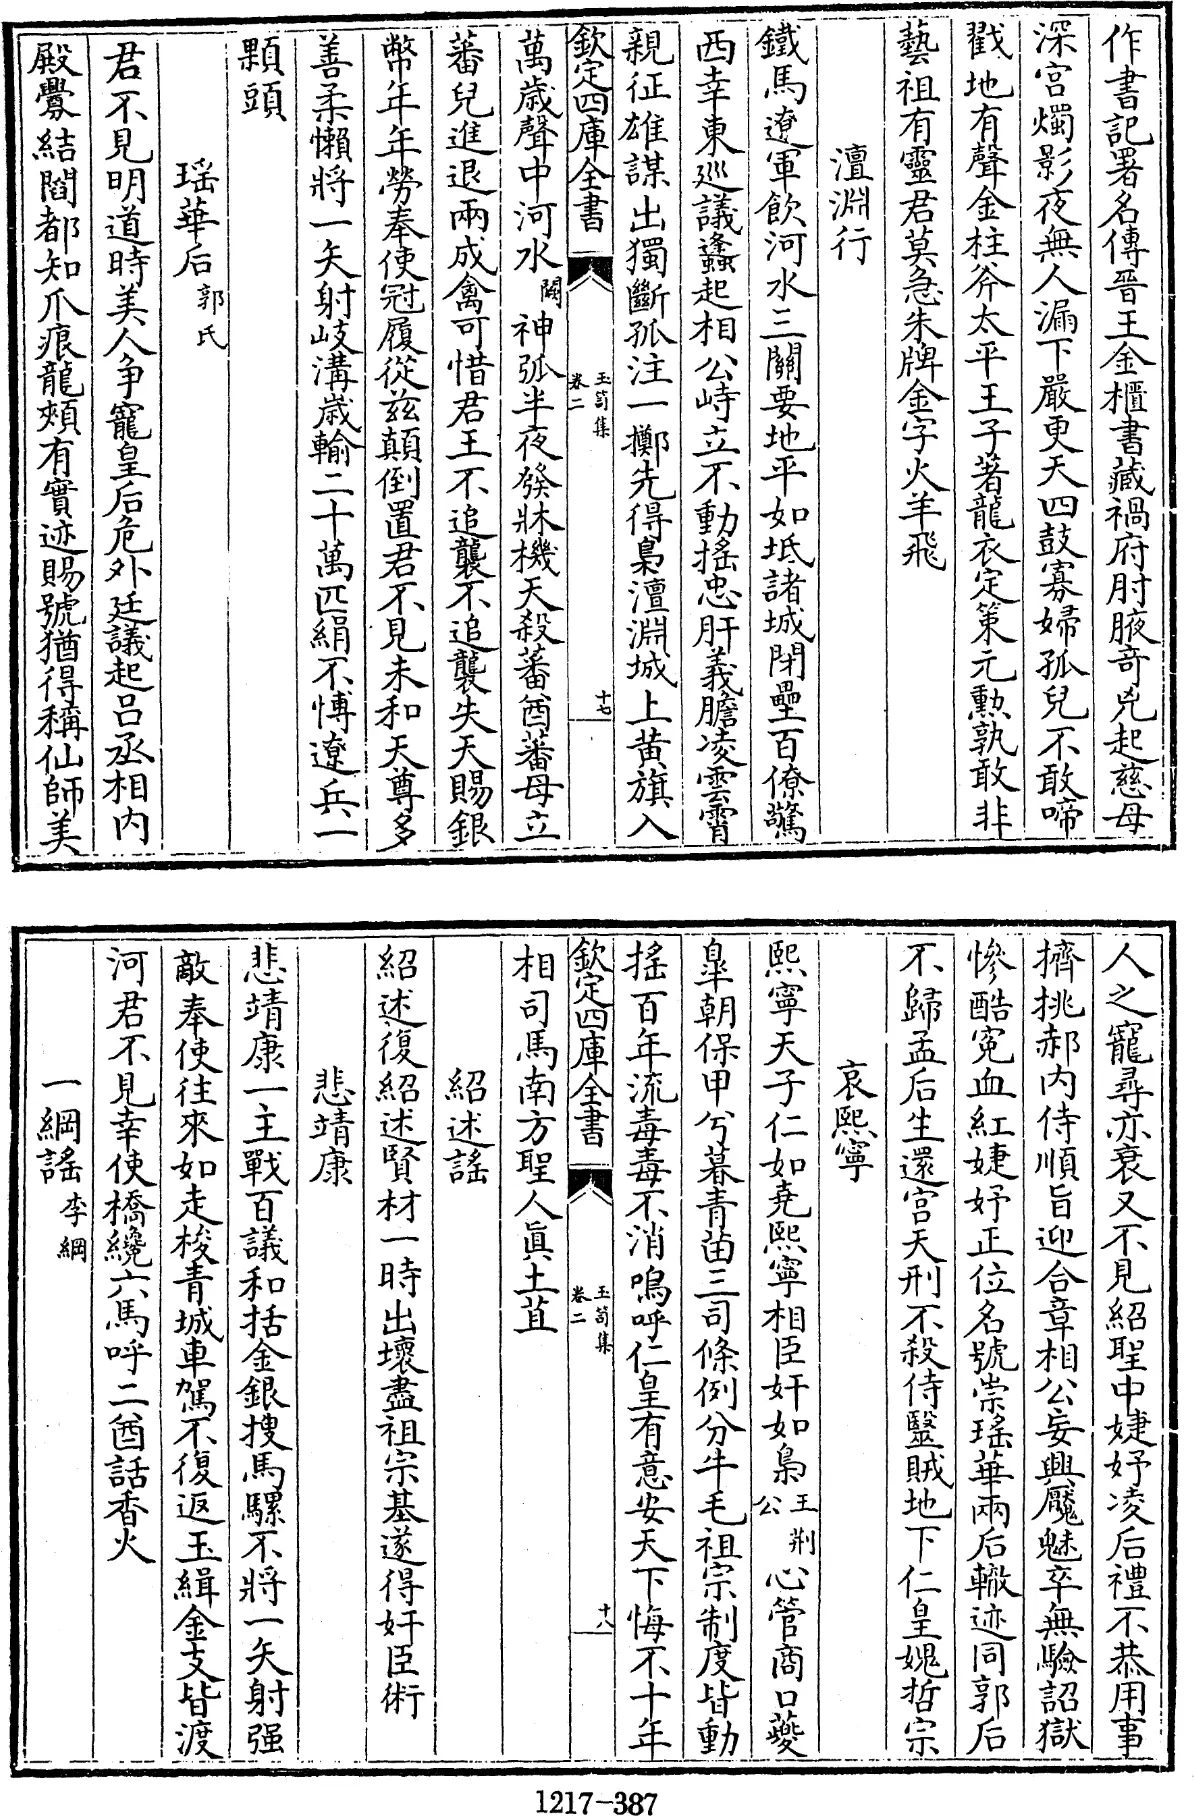 作書記署名傳晉王金櫃書藏禍府肘腋竒兇起慈母
深宮燭影夜無人漏下嚴更天四鼓寡婦孤兒不敢啼
戳地有聲金柱斧太平王子著龍衣定策元勲孰敢非
藝祖有靈君莫急朱牌金字火羊飛
澶淵行
鐵馬遼軍飲河水三關要地平如坻諸城閉壘百僚驚
西幸東廵議蠭起相公峙立不動搖忠肝義膽凌雲霄
親征雄謀出獨斷孤注一擲先得梟澶淵城上黃旗入
欽定四庫全書
玉笥集
卷二
十七
萬歲聲中河水闕神弧半夜發牀機天殺蕃酋蕃母立
蕃兒進退兩成禽可惜君王不追襲不追襲失天賜銀
幣年年勞奉使冠履從茲顛倒置君不見未和天尊多
善柔懶將一矢射岐溝歲輸二十萬匹絹不博遼兵一
顆頭
瑶華后郭氏
君不見明道時美人争寵皇后危外廷議起呂丞相内
殿釁結閻都知爪痕龍頰有實迹賜號猶得稱仙師美
人之寵尋亦衰又不見紹聖中婕妤凌后禮不恭用事
擠挑郝内侍順旨迎合章相公妄興魘魅卒無驗詔獄
慘酷寃血紅婕妤正位名號崇瑤華兩后轍迹同郭后
不歸孟后生還宮天刑不殺侍醫賊地下仁皇媿哲宗
哀熙寧
熙寧天子仁如堯熙寧相臣奸如梟王荆公心管商口夔
臯朝保甲兮暮青苗三司條例分牛毛祖宗制度皆動
搖百年流毒毒不消嗚呼仁皇有意安天下悔不十年
欽定四庫全書
玉笥集
卷二
十八
相司馬南方聖人眞土苴
紹述謠
紹述復紹述賢材一時出壞盡祖宗基遂得奸臣術
悲靖康
悲靖康一主戰百議和括金銀搜馬騾不將一矢射强
敵奉使往來如走梭青城車駕不復返玉緝金支皆渡
河君不見幸使橋纔六馬呼二酋話香火
一綱謠李綱
1217-387